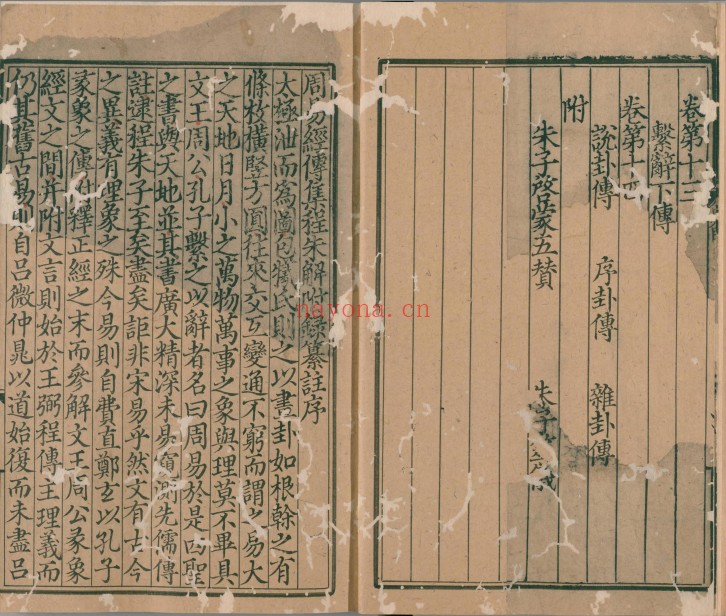 卷第十三
繫辭下傳
卷第十四
說卦傳 序卦傳 雜卦傳
附
朱子啓蒙五贊 朱子
周易經傳集程朱解附録纂註序
太極泄而為圖包犧氏則之以畫卦如根榦之有
條枚橫豎方圓往來交互變通不窮而謂之易大
之天地日月小之萬物萬事之象與理莫不畢具
文王周公孔子繫之以辭者名曰周易於是四聖
之書與天地並其書廣大精深未易窺測先儒傳
註逮程朱子至矣盡矣詎非宋易乎然文有古今
之異義有理象之殊今易則自費直鄭玄以孔子
彖象之傳釋正經之末而參解文王周公彖象
經文之間并附文言則始於王弼程傳主理義而
仍其舊古易則自呂微仲晁以道始復而未盡呂
nayona.cn